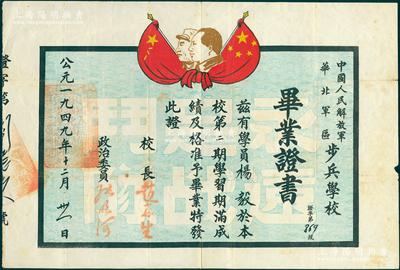 中國人民解放軍
華北軍區步兵學校
畢業證書
證字第869號
茲有學員楊毅於本
校第二期學習期滿成
績及格准予畢業特發
此證
校長
政治委員
公元一九四九年十二月卅一日